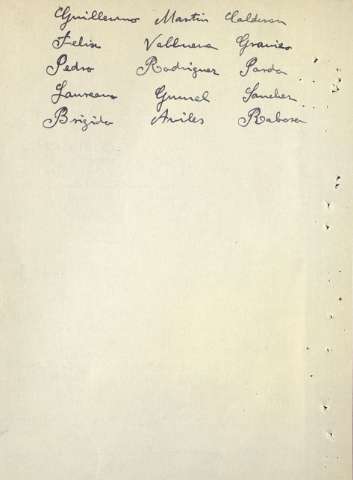 Guillermo Martin Calderon
Felix Valbuena
Pedro Rodriguez Parda
Laureano Sanchez
Brigida Aviles